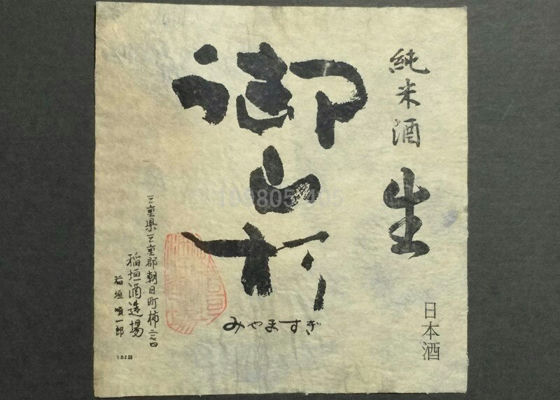 純米酒 生
日本酒
御山杉
みやますぎ
三重県三重郡朝日町柿
稲垣酒造場
稲垣